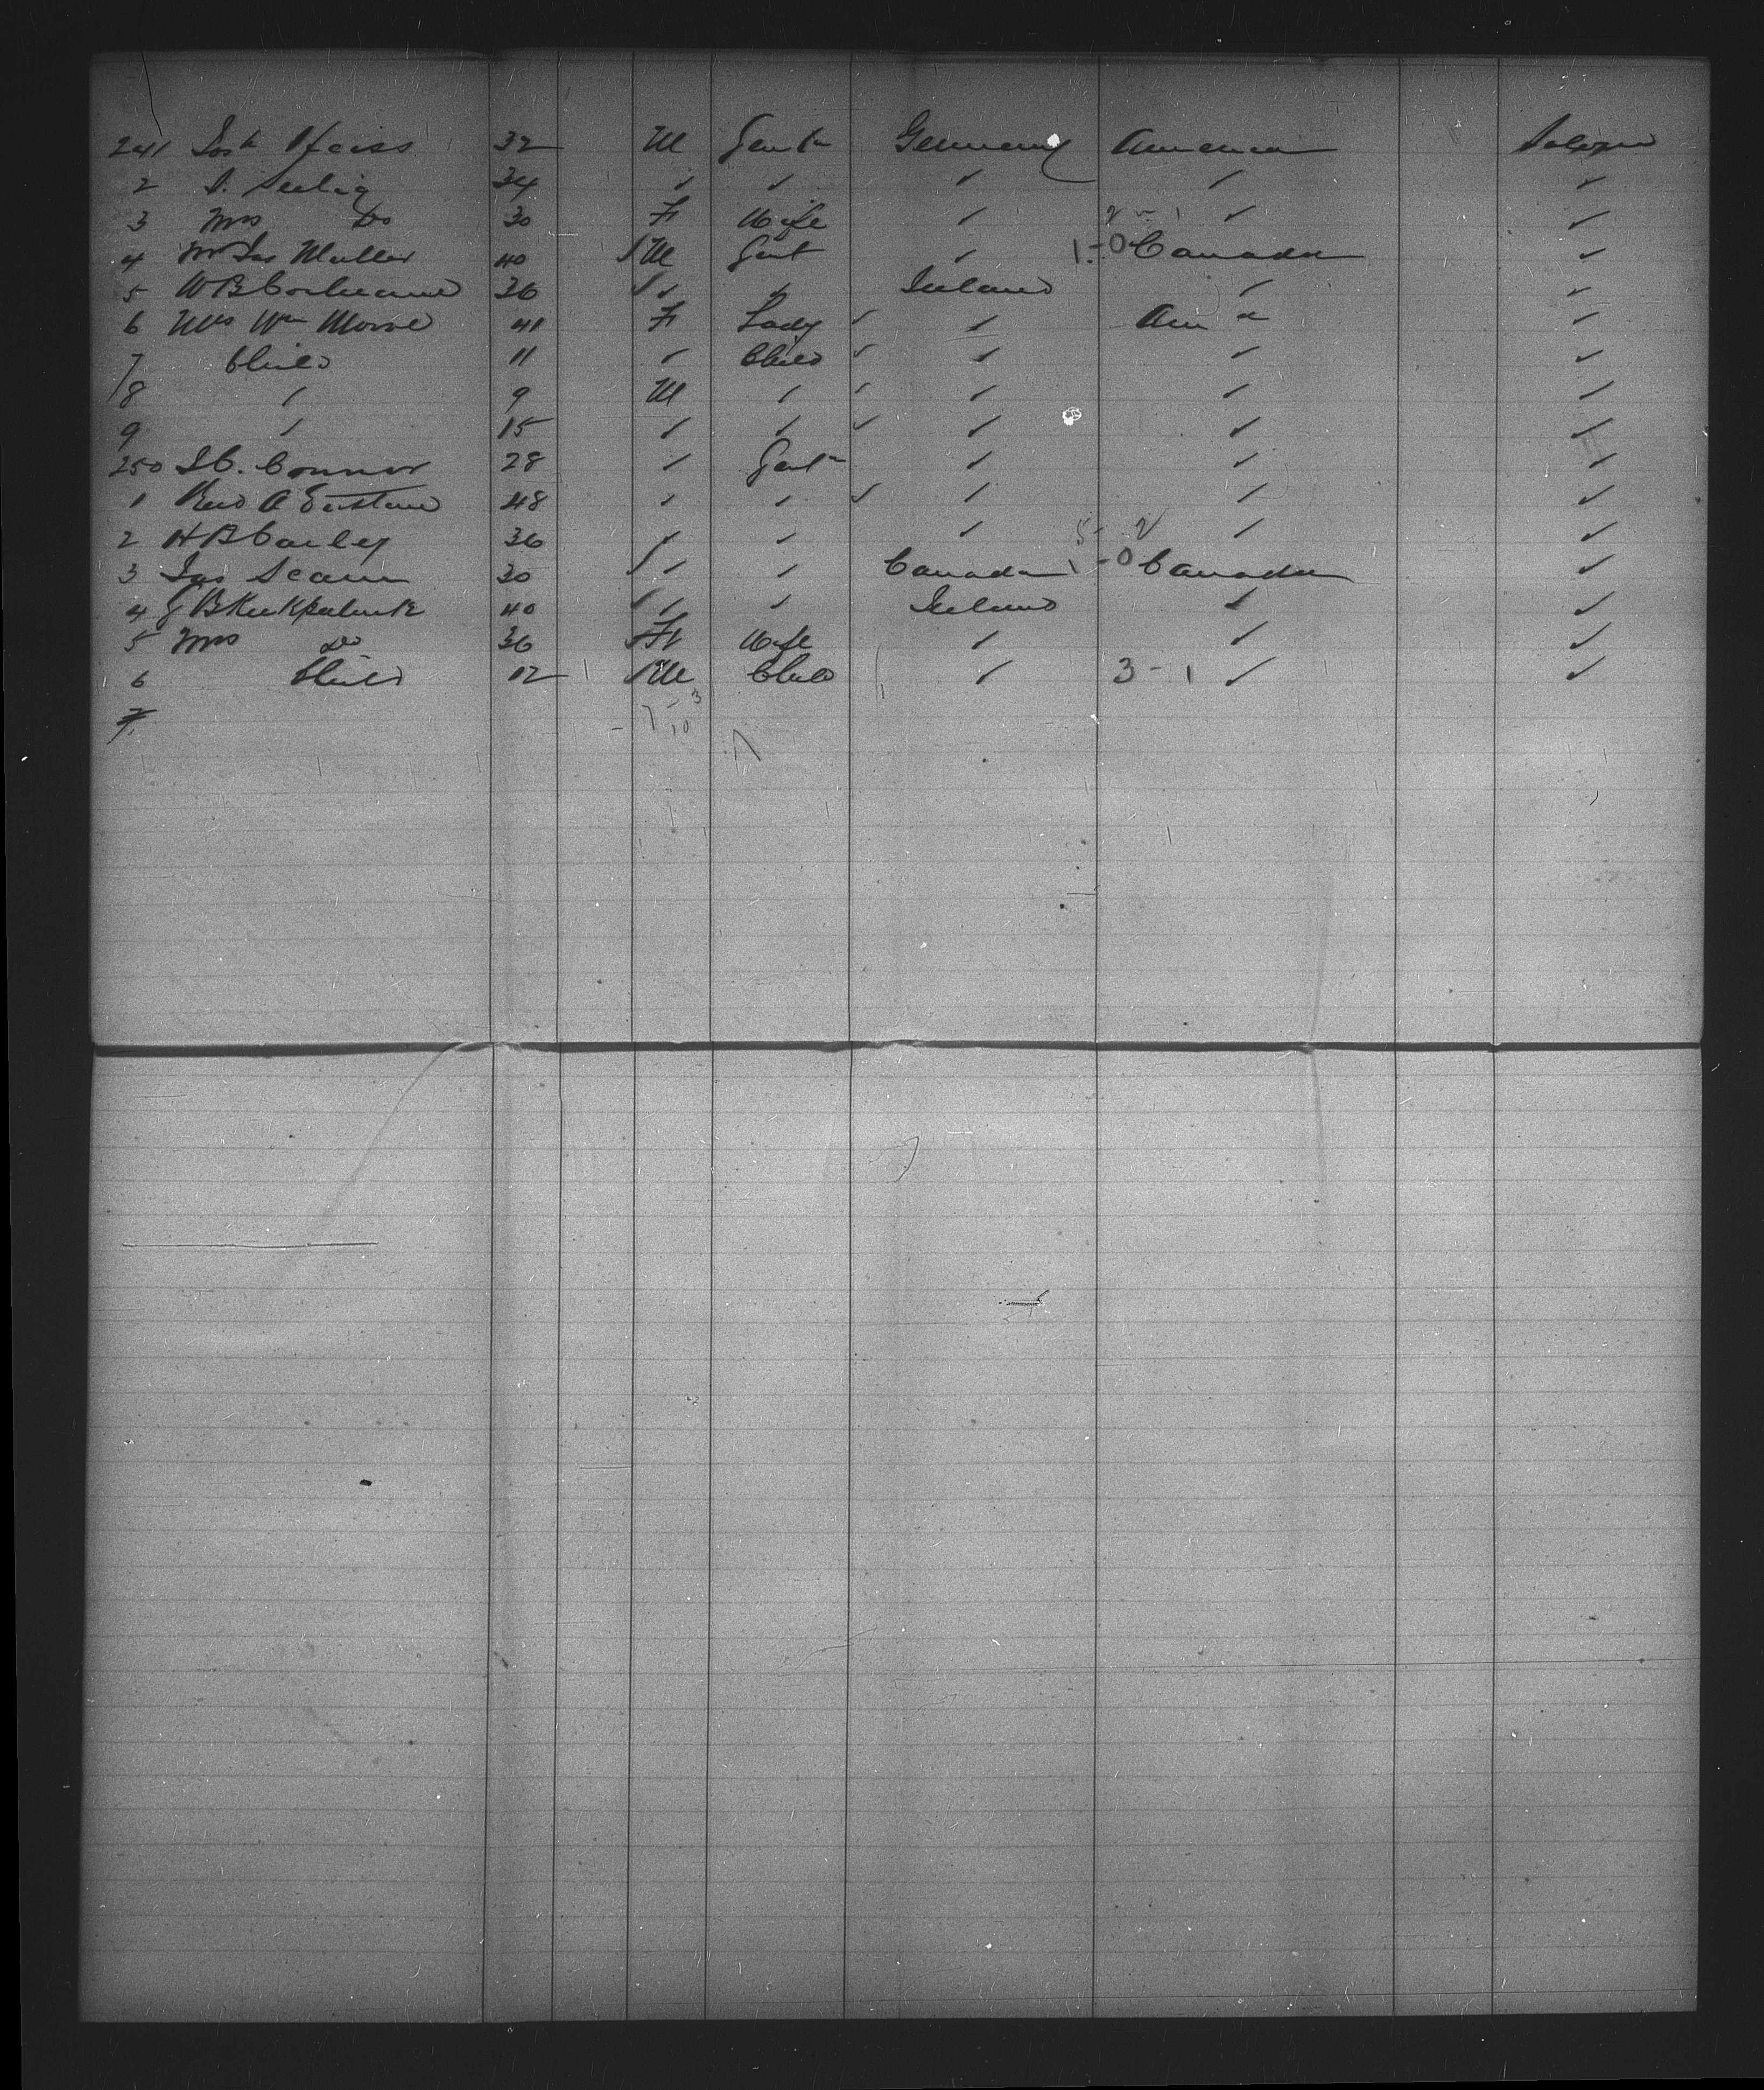 241 Josh Weiss 32 M Gentn Germany America Saloon
2 S. Seelig 34 ✓ ✓ ✓ ✓ ✓
3 Mrs Do 30 F Wife ✓ 2 - 1 ✓ ✓
4 Mr Jas Muller 40 M Gent ✓ 1 - 0 Canada ✓
5 W B Cochrane 36 ✓ ✓ Ireland ✓ ✓
6 Mrs Wm Morre 41 F Lady ✓ ✓ Am a ✓
7 Child 11 ✓ Child ✓ ✓ ✓ ✓
8 ✓ 9 M ✓ ✓ ✓ ✓ ✓
9 ✓ 15 ✓ ✓ ✓ ✓ ✓ ✓
250 Connor 28 ✓ Gentn ✓ ✓ ✓
1 Revd A 48 ✓ ✓ ✓ ✓ ✓ ✓
2 H B 36 ✓ ✓ ✓ 5 - 2 ✓ ✓
3 Jas 30 ✓ ✓ Canada 1 - 0 Canada ✓
4 Kirkpatrick 40 ✓ ✓ Ireland ✓ ✓
5 Mrs Do 36 F Wife ✓ ✓ ✓
6 Child 12 M Child ✓ 3 - 1 ✓ ✓
7
7 - 3
10